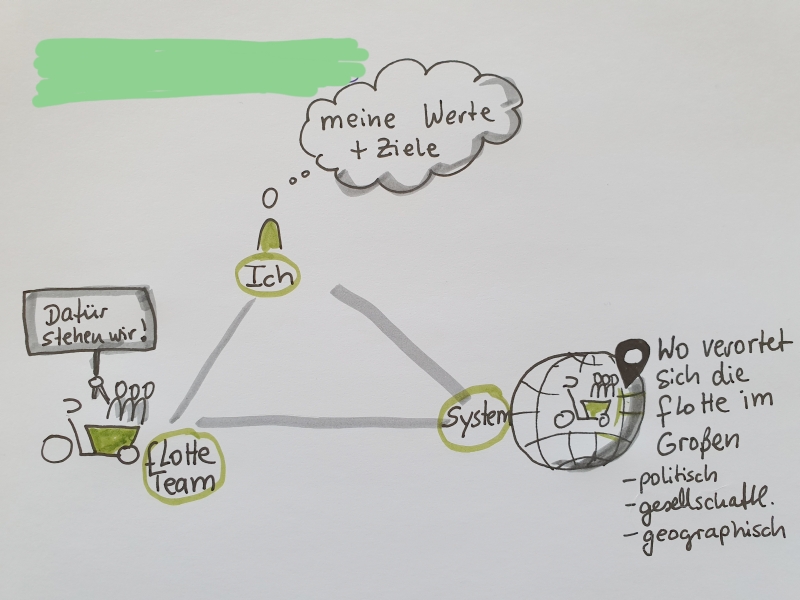 meine Werte
+ Ziele
Ich
Dafür
stehen wir!
fLotte
Team
System
Wo verortet
sich die
fLotte im
Großen
- politisch
- gesellschaftl.
- geographisch